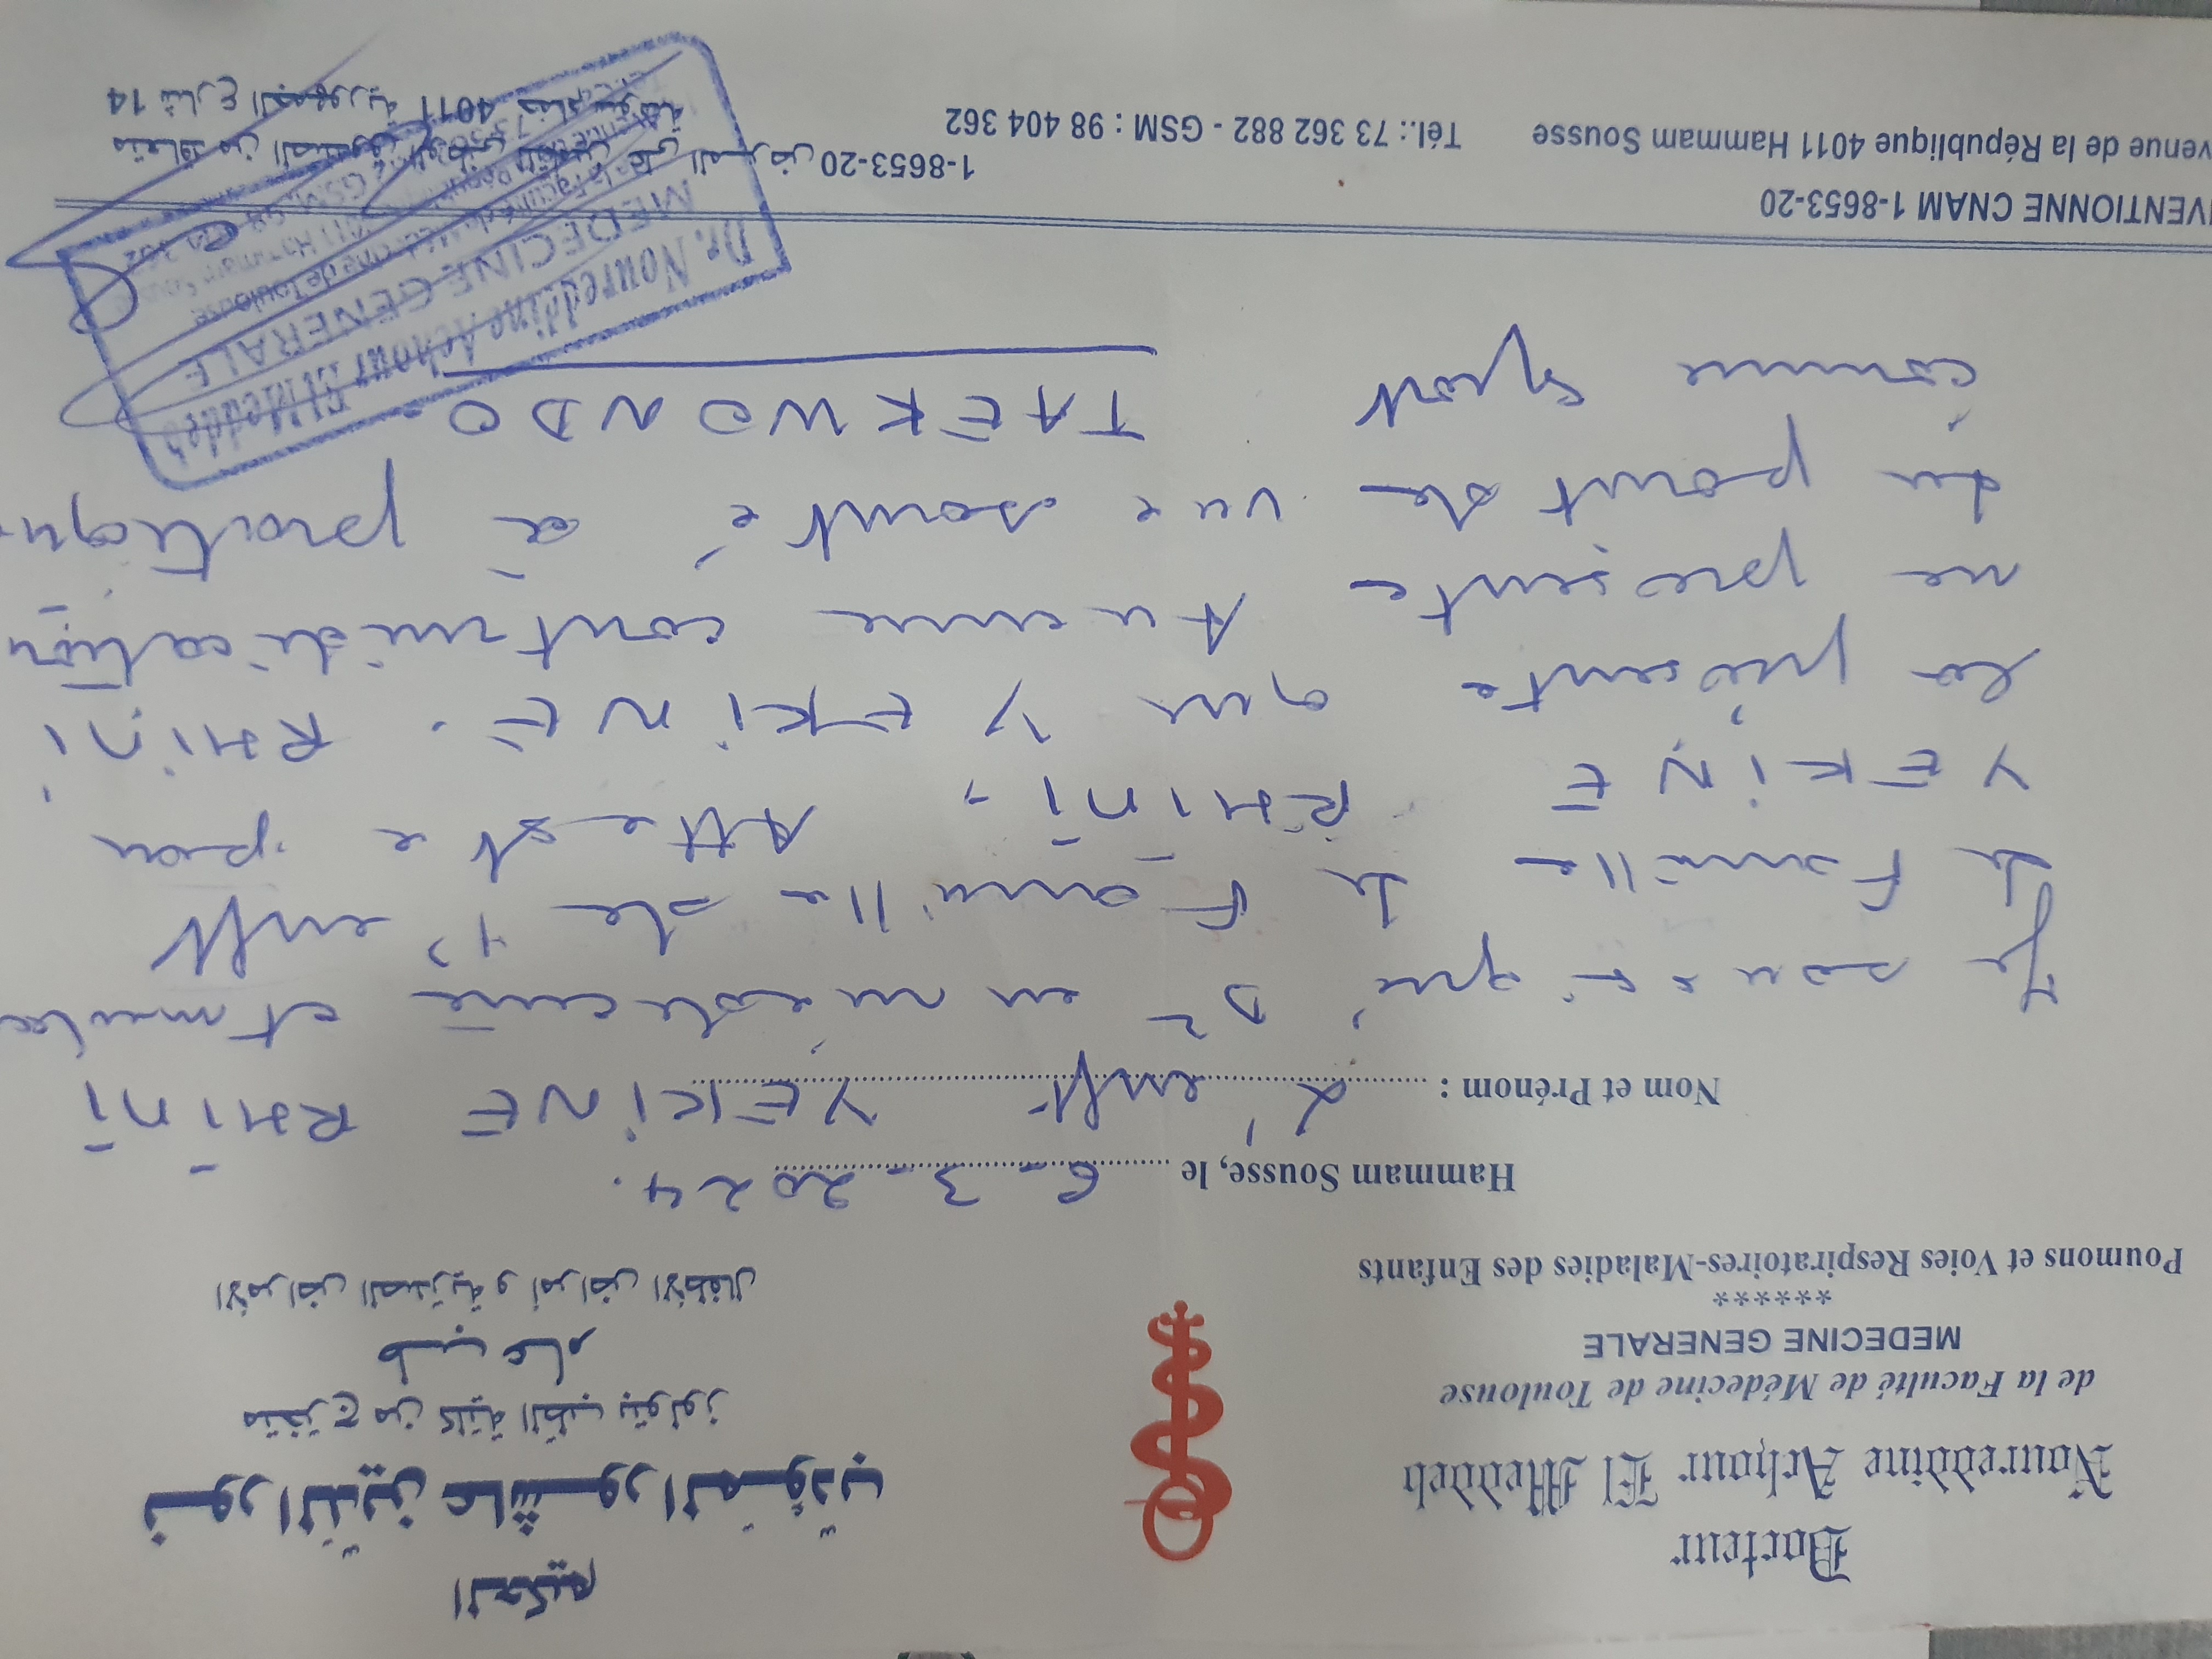 Docteur
Noureddine Achour El Meddeb
de la Faculté de Médecine de Toulouse
MEDECINE GENERALE
******
Poumons et Voies Respiratoires-Maladies des Enfants
الحكيم
نور الدين عاشور المؤدب
متخرج من كلية الطب بتولوز
طب عام
الأمراض الصدرية و أمراض الأطفال
Hammam Sousse, le 6-3-2024.
Nom et Prénom : L'enft YEKINE RHINI
Je soussigné, Dr en médecine et médecin
de Famille de la Famille de l'enft
YEKINE RHINI, Atteste par
la présente que YEKINE RHINI
ne présente Aucune contre indication
du point de vue santé à pratiquer
comme sport TAEKWONDO
VENTIONNE CNAM 1-8653-20
venue de la République 4011 Hammam Sousse Tél.: 73 362 882 - GSM : 98 404 362
متعاقد مع الصندوق الوطني للتأمين على المرض 1-8653-20
14 شارع الجمهورية 4011 حمام سوسة
Dr. Noureddine Achour El Meddeb
MEDECINE GENERALE
de la Faculté de Médecine de Toulouse